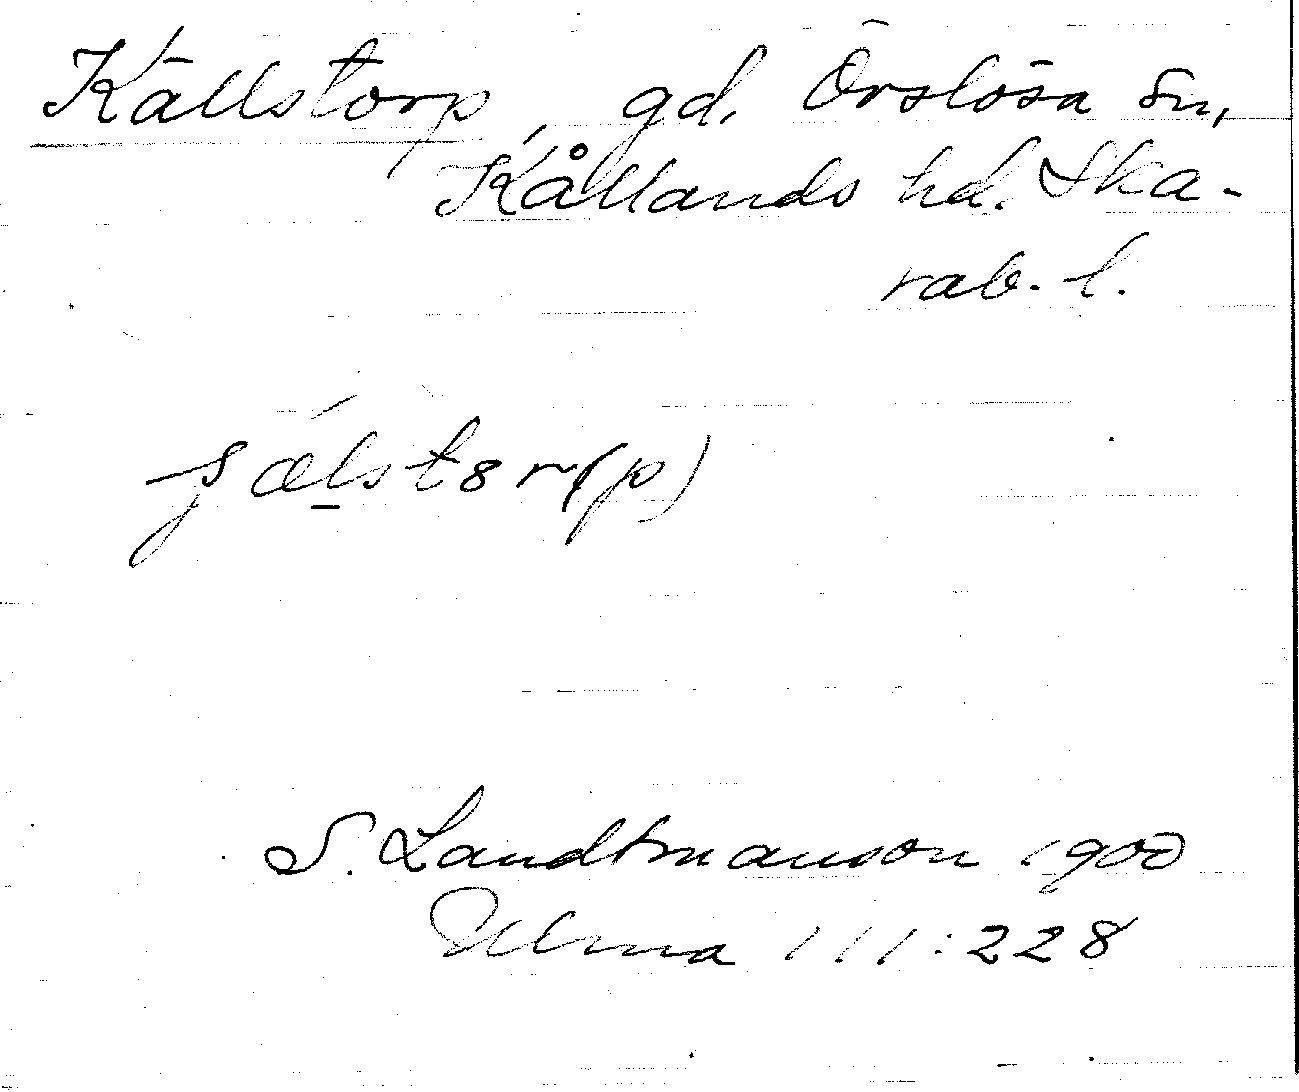 Källstorp, gd. Örslösa sn,
Kållands hd. Ska-
rab. l.
ʃæ̀lstɷr(p)
S. Landtmanson 1900
Ulma 111:228